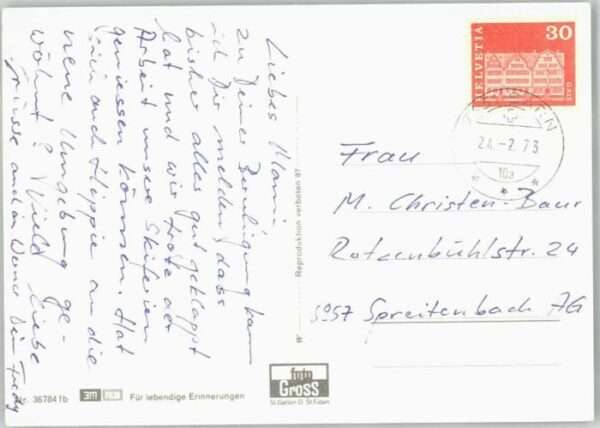 Liebes Mami,
zu Deiner Beruhigung kann
ich Dir melden, dass
bisher alles gut geklappt
hat und wir trotz der
Arbeit unsere Skiferien
geniessen können. Hat
sich auch Hippie an die
neue Umgebung ge-
wöhnt? Viele liebe
Grüsse auch an Werner Dein Fredy
HELVETIA
30
24.-2.73
10a
Frau
M. Christen-Baur
Rotzenbühlstr. 24
8957 Spreitenbach AG
W
Reproduktion verboten 87
36784 1b
3M
Für lebendige Erinnerungen
foto
Gross
St.Gallen O St.Fiden